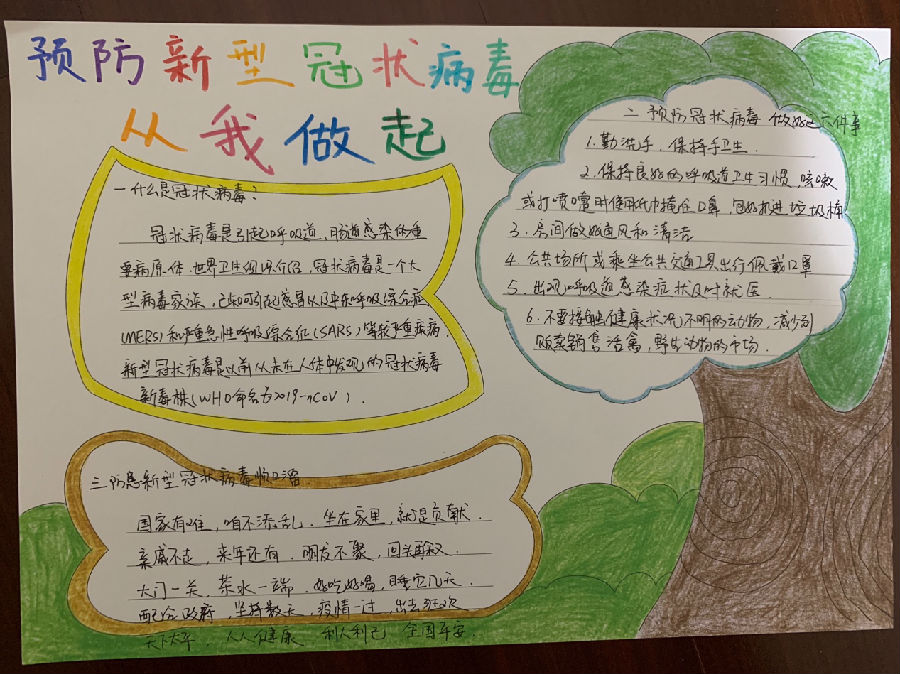 预防新型冠状病毒
从我做起
一什么是冠状病毒?
冠状病毒是引起呼吸道,肠道感染的重
要病原体.世界卫生组织介绍,冠状病毒是一个大
型病毒家族,已知可引起感冒以及中东呼吸综合症
(MERS)和严重急性呼吸综合症(SARS)等较严重疾病.
新型冠状病毒是以前从未在人体中发现的冠状病毒
新毒株(WHO命名为2019-nCoV).
二 预防冠状病毒 做好这六件事
1.勤洗手,保持手卫生.
2.保持良好的呼吸道卫生习惯,咳嗽
或打喷嚏时使用纸巾掩住口鼻,包好扔进垃圾桶
3.房间做好通风和清洁
4.公共场所或乘坐公共交通工具出行佩戴口罩
5.出现呼吸道感染症状及时就医
6.不要接触健康状况不明的动物,减少到
贩卖销售活禽,野生动物的市场.
三.防患新型冠状病毒顺口溜
国家有难,咱不添乱.坐在家里,就是贡献.
亲戚不走,来年还有.朋友不聚,回头再叙.
大门一关,茶水一端.好吃好喝,睡它几天.
配合政府,坚持数天,疫情一过,出去狂欢
天下太平,人人健康 利人利己 全国平安.